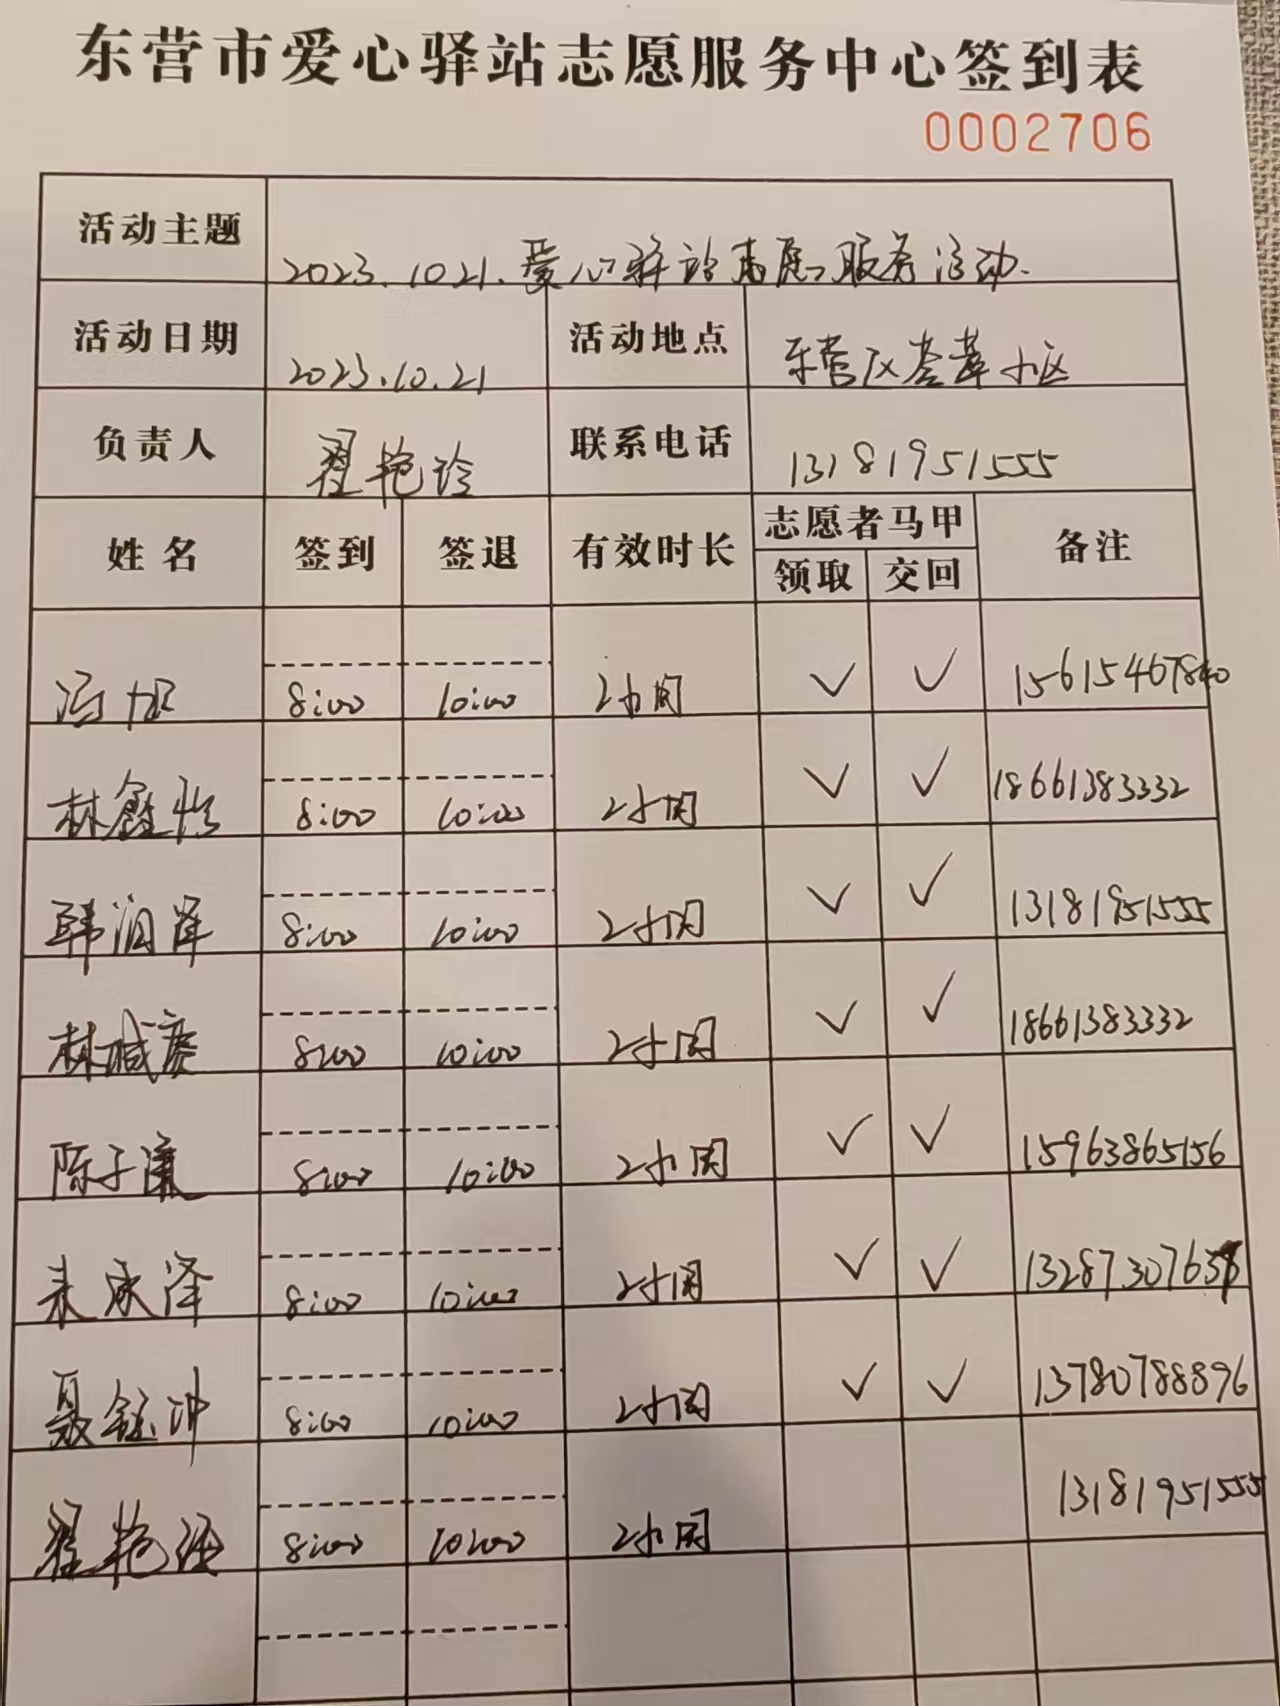 东营市爱心驿站志愿服务中心签到表
0002706
活动主题 2023.10.21.爱心驿站志愿服务活动.
活动日期 2023.10.21 活动地点 东营区荟萃小区
负责人 翟艳玲 联系电话 13181951555
姓名 签到 签退 有效时长 志愿者马甲 备注
领取 交回
冯 8:00 10:00 2小时 ✓ ✓ 15615467840
林鑫怡 8:00 10:00 2小时 ✓ ✓ 18661383332
韩润泽 8:00 10:00 2小时 ✓ ✓ 13181951555
林 8:00 10:00 2小时 ✓ ✓ 18661383332
陈子 8:00 10:00 2小时 ✓ ✓ 15963865156
8:00 10:00 2小时 ✓ ✓
聂钰冲 8:00 10:00 2小时 ✓ ✓ 13780788896
翟艳玲 8:00 10:00 2小时 13181951555